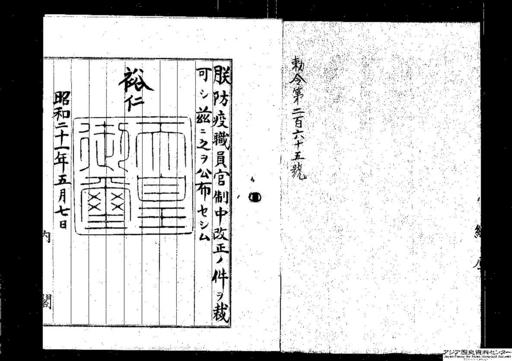 勅令第二百六十五號
朕防疫職員官制中改正ノ件ヲ裁
可シ茲ニ之ヲ公布セシム
裕仁
天皇御璽
昭和二十一年五月七日
内閣
アジア歴史資料センター